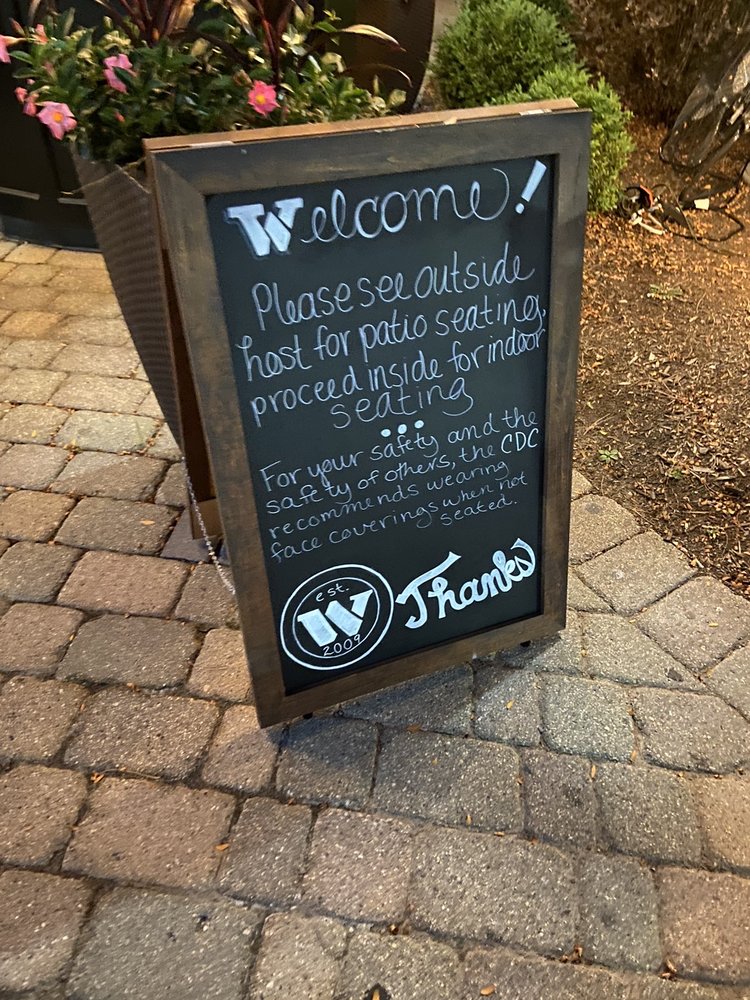 Welcome!
Please see outside
host for patio seating,
proceed inside for indoor
seating
...
For your safety and the
safety of others, the CDC
recommends wearing
face coverings when not
seated.
est.
W
2009
Thanks